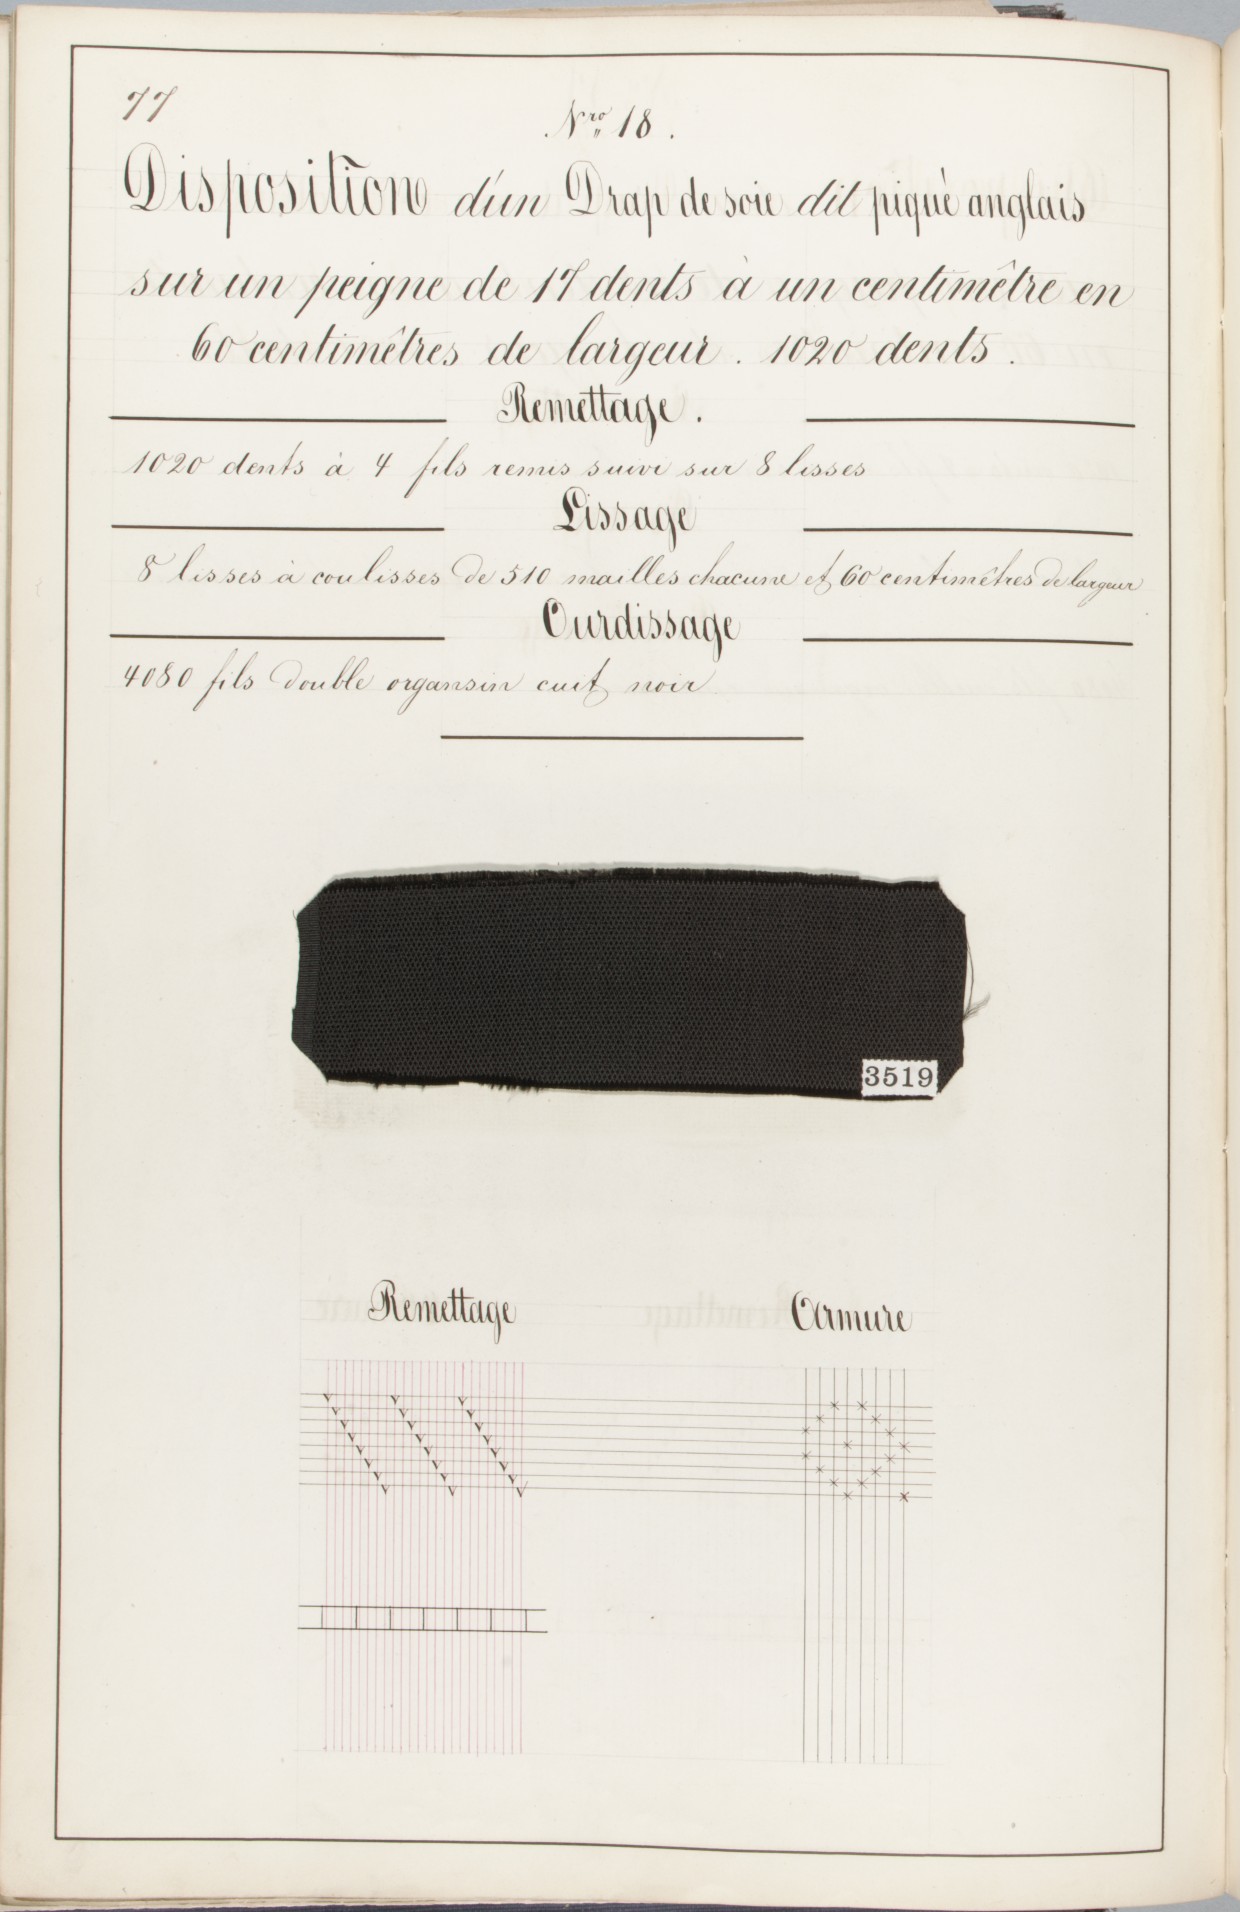 77
Nro 18.
Disposition d'un Drap de soie dit piquè anglais
sur un peigne de 17 dents à un centimêtre en
60 centimêtres de largeur. 1020 dents.
Remettage.
1020 dents à 4 fils remis suivi sur 8 lisses
Lissage
8 lisses à coulisses de 510 mailles chacune et 60 centimêtres de largeur
Ourdissage
4080 fils double organsin cuit noir
3519
Remettage Armure